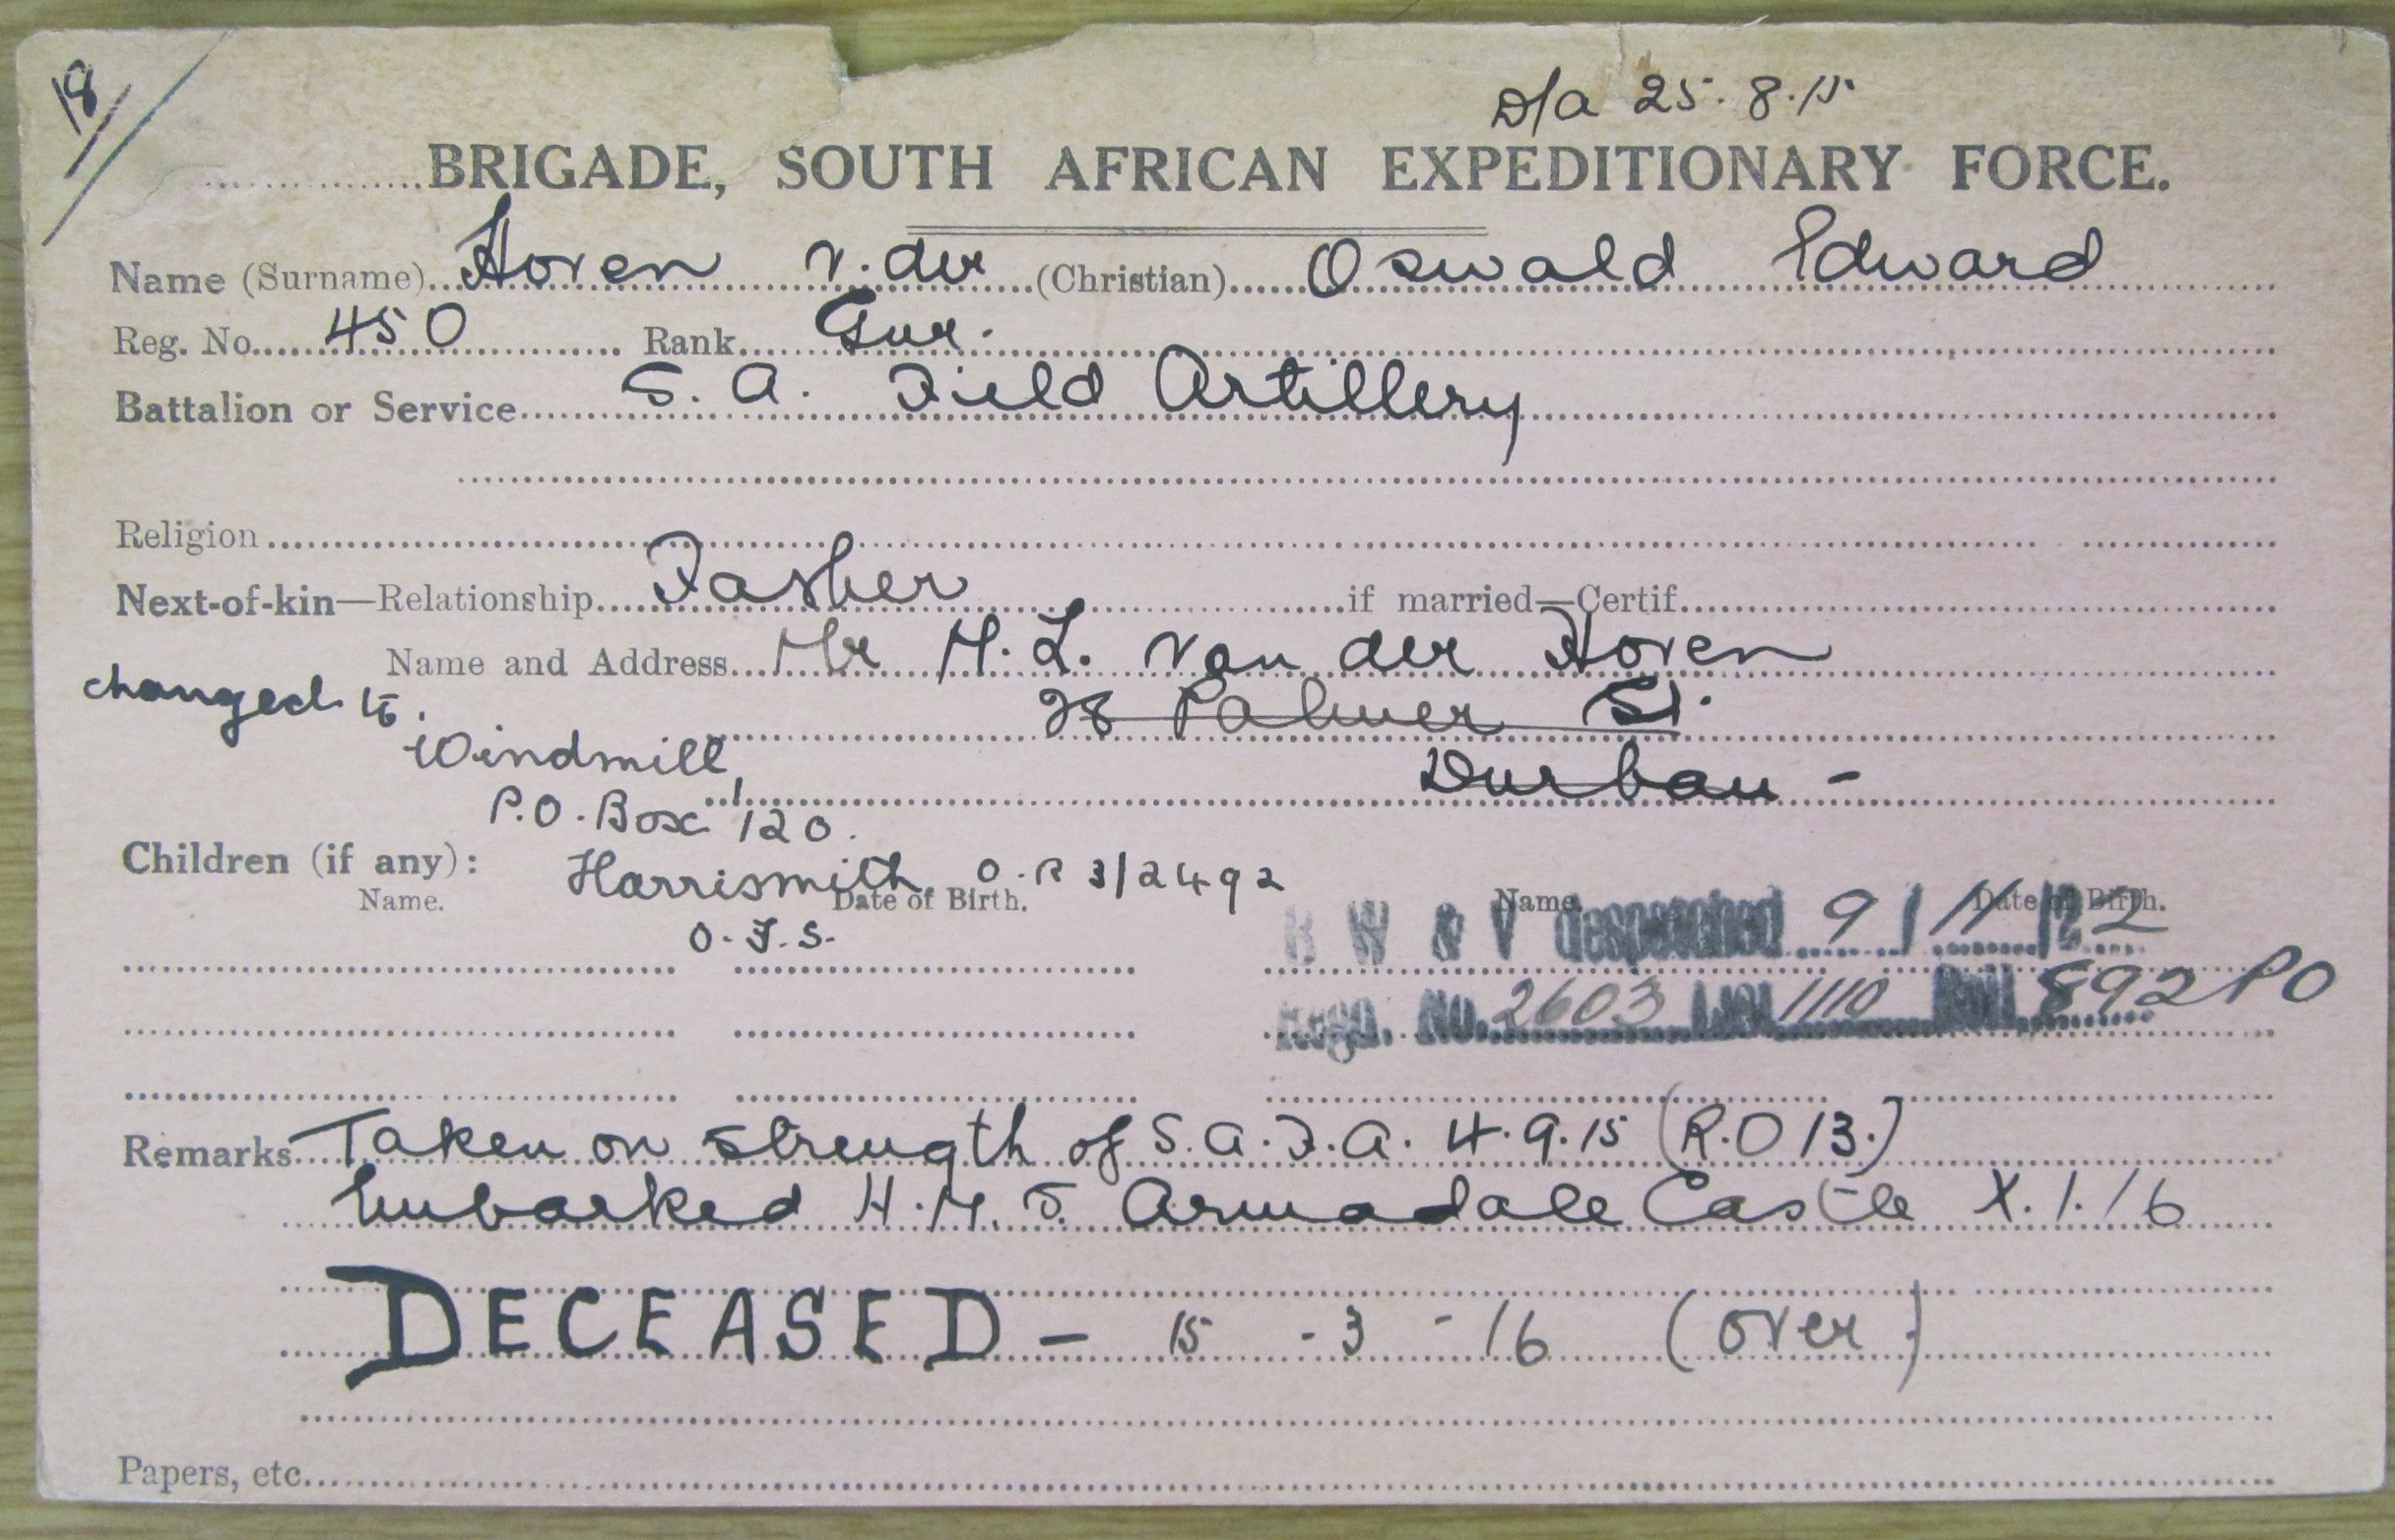 18
D/a 25.8.15
BRIGADE, SOUTH AFRICAN EXPEDITIONARY FORCE.
Name (Surname) Hoven v. der (Christian) Oswald Edward
Reg. No. 450 Rank Gnr.
Battalion or Service S. A. Field Artillery
Religion
Next-of-kin—Relationship Father if married—Certif.
Name and Address Mr H. L. Van der Hoven
28 Palmer St.
Durban -
changed to.
Windmill,
P.O. Box 120.
Harrismith O.R 3/2492
O.F.S.
Children (if any):
Name. Date of Birth. Name. Date of Birth.
B W & V despatched 9/11/22
Regd. No. 2603 List 1110 Roll 892 PO
Remarks Taken on strength of S.A.F.A. 4.9.15 (R.O 13.)
Embarked H.M.T. Armadale Castle X.1.16
DECEASED - 15 - 3 - 16 (over)
Papers, etc.